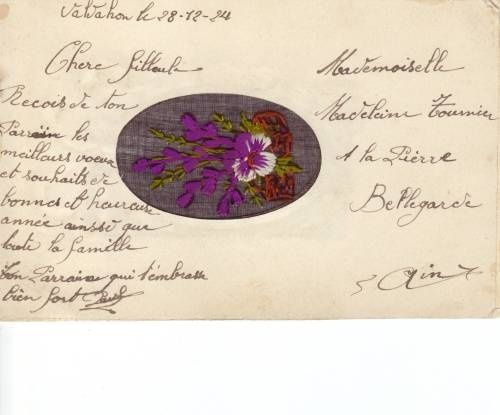 Valdahon le 28-12-24
Chere filleule
Recois de ton
Parrain les
meilleurs voeux
et souhaits de
bonnes et heureuse
année ainssi que
toute la famille
Ton Parrain qui t'embrasse
bien fort
Mademoiselle
Madeleine Tournier
A la Pierre
Bellegarde
Ain